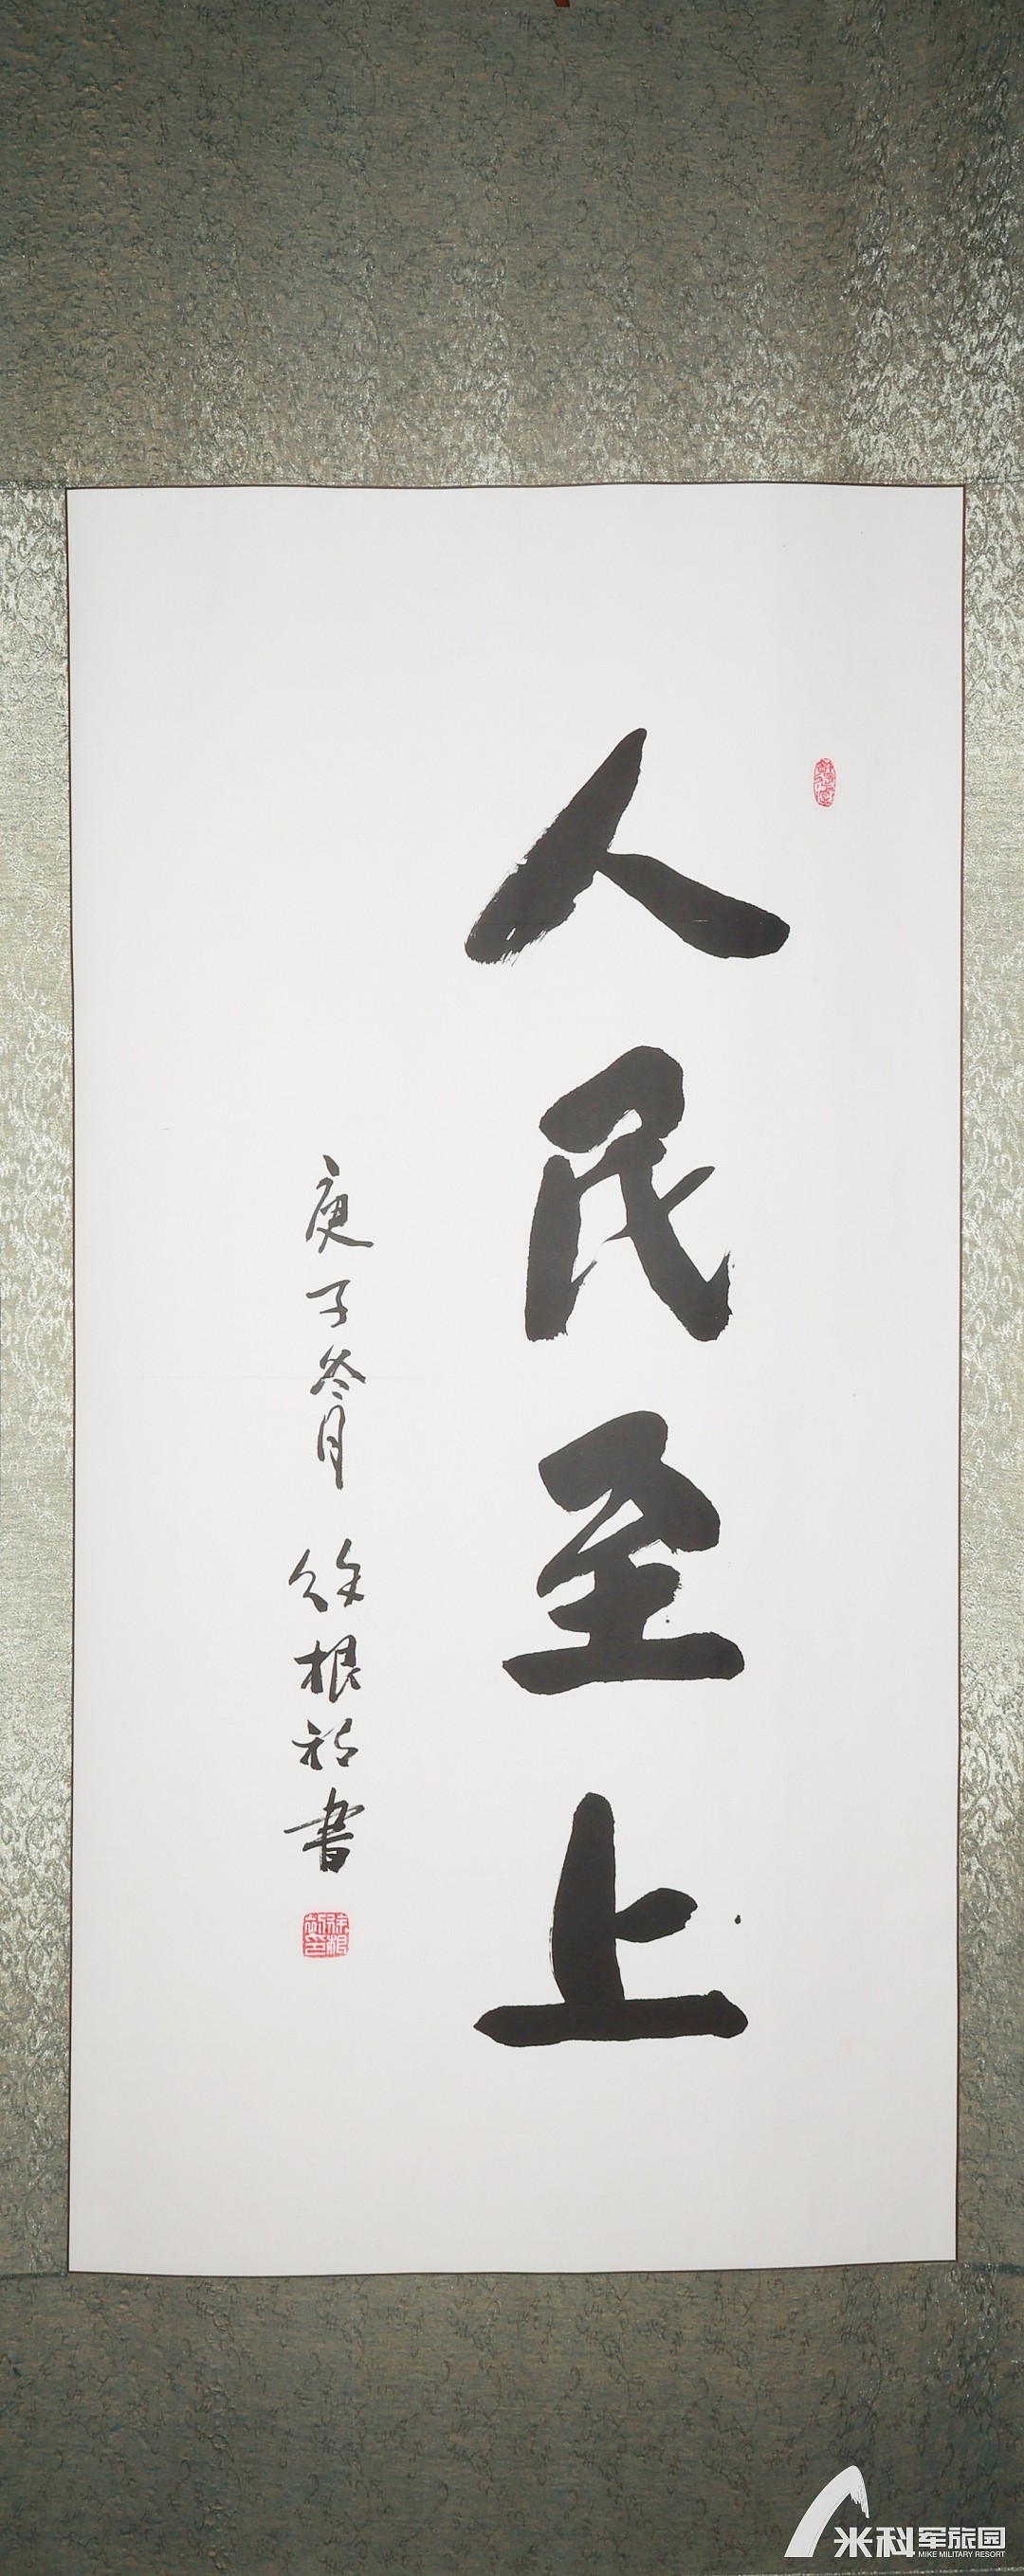 人民至上
庚子冬月 徐根初書
米科军旅园
MIKE MILITARY RESORT